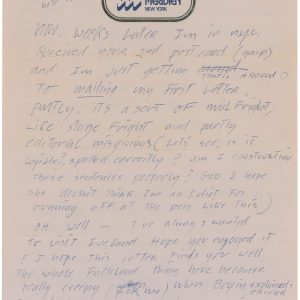 MERIDIEN
NEW YORK
Wow, weeks later I'm in nyc.
Received your 2nd postcard (gasp)
and I'm just getting around
to mailing my first letter.
partly, its a sort of mail fright,
like stage fright and partly
editorial misgivings (let's see, is it
legible?, spelled correctly? Am I constructing
these sentences properly? Gee I hope
she doesn't think I'm an idiot for
running off at the pen like this)
oh well — I've always wanted
to visit Ireland. Hope you enjoyed it
& I hope this letter finds you well
The whole Falkland thing here became
really creepy (for me) when Begin explained